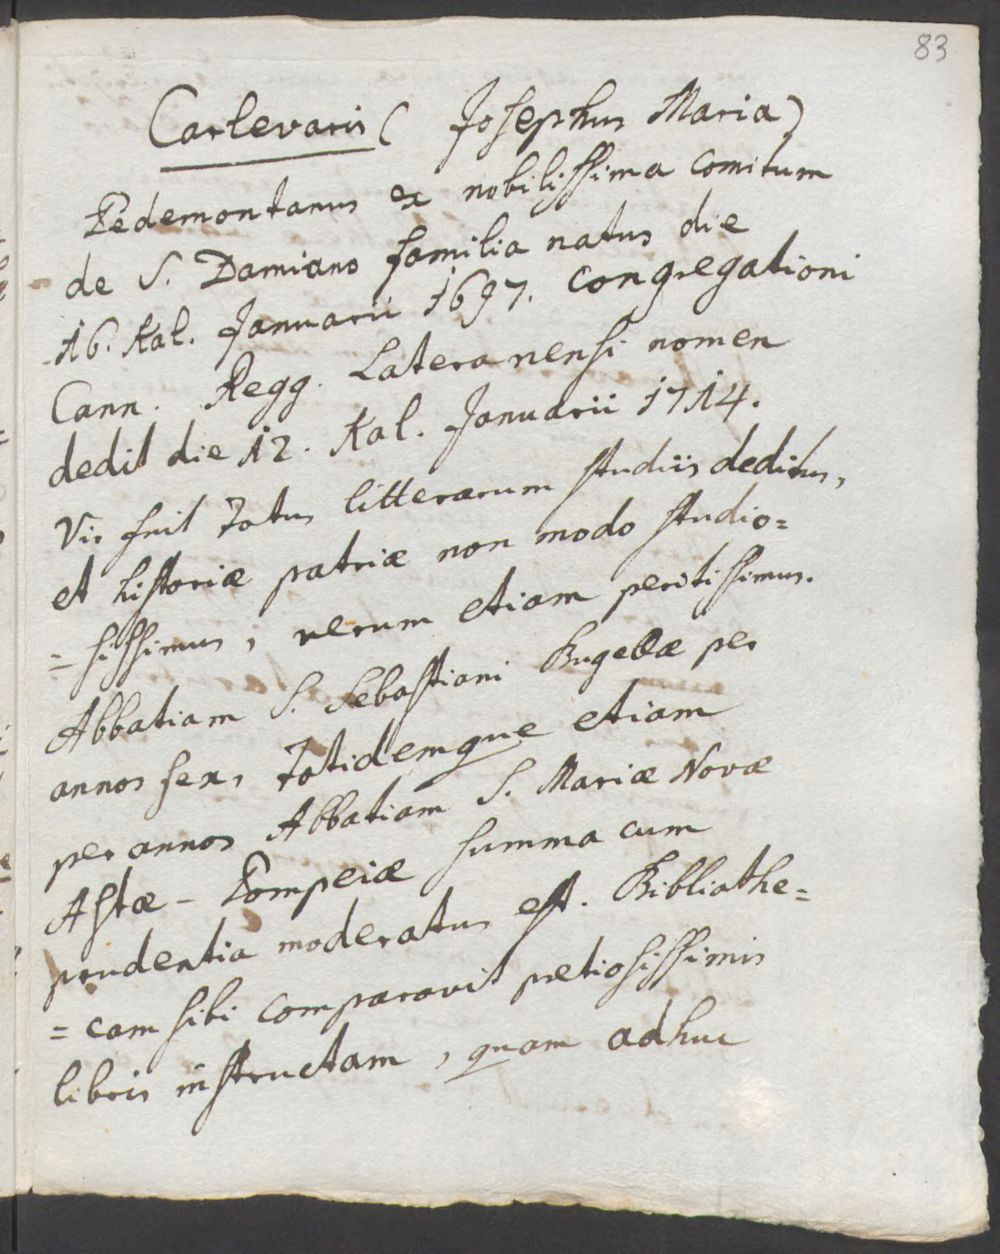 83
Carlevaris ( Josephus Maria )
Pedemontanus ex nobilissima Comitum
de S. Damiano familia natus die
16. Kal. Januarii 1697. Congregationi
Cann. Regg. Lateranensi nomen
dedit die 12. Kal. Januarii 1714.
Vir fuit totus litterarum studiis deditus,
et historiæ patriæ non modo studio=
=sissimus, verum etiam peritissimus.
Abbatiam S. Sebastiani Bugellæ per
annos sex, totidemque etiam
per annos Abbatiam S. Mariæ Novæ
Astæ-Pompeiæ summa cum
prudentia moderatus est. Bibliathe=
=cam sibi comparavit pretiosissimis
libris instructam, quam adhuc